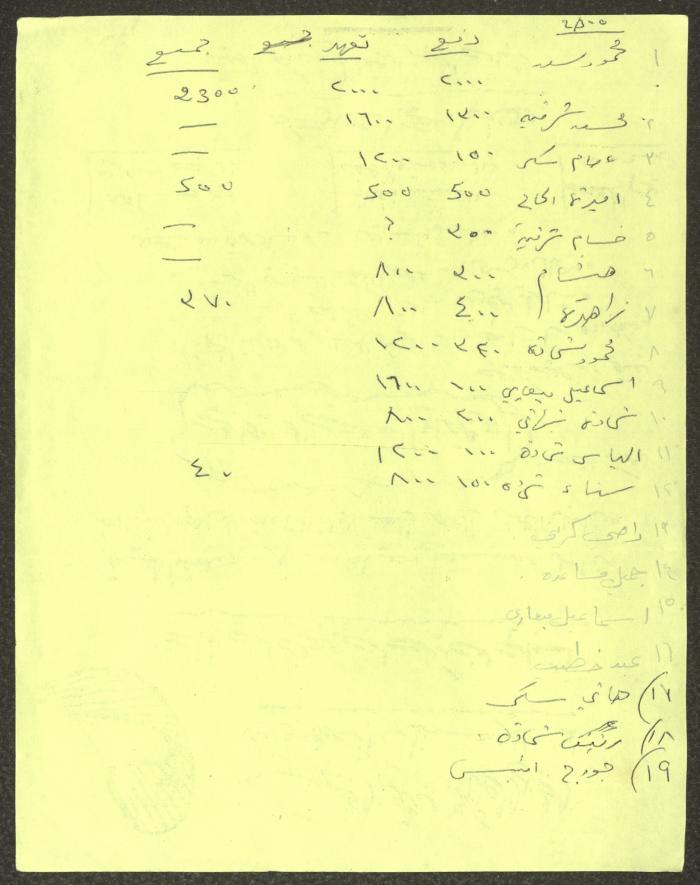 ٢٨٠٠
دفع تعهد جمع جميع
١ محمود سعد ٢٠٠٠ ٢٠٠٠ 2300
٢ محمد شرقية ١٣٠٠ ١٦٠٠ —
٣ عصام سكر ١٥٠ ١٢٠٠ —
٤ اميرة الحاج 500 500 500
٥ حسام شرقية ٣٥٠ ? —
٦ هشام ٣٠٠ ٨٠٠ —
٧ زاهرة ٤٠٠ ٨٠٠ ٣٧٠
٨ محمود شحادة ٣٤٠ ١٢٠٠
٩ اسماعيل بيعاري ١٠٠ ١٦٠٠
١٠ شحادة ٢٠٠ ٨٠٠
١١ الياس شحادة ١٠٠ ١٢٠٠
١٢ سناء ١٥٠ ٨٠٠ ٤٠
١٣ راضي
١٤ جميل مساعده
١٥ اسماعيل بيعاري
١٦ عبد خطيب
١٧) هاني سكر
١٨) رفيق شحادة
١٩) جورج